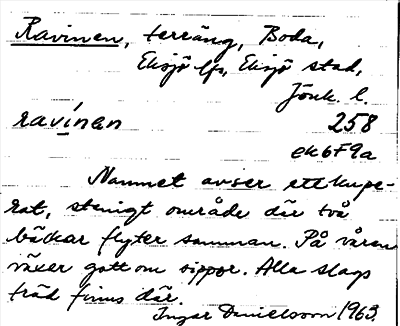 Ravinen, terräng, Boda,
Eksjö lfs, Eksjö stad,
Jönk. l.
ravínen 258
ek6F9a
Namnet avser ett kupe-
rat, stenigt område där två
bäckar flyter samman. På våren
växer gott om sippor. Alla slags
träd finns där.
Ingar Danielsson 1963.